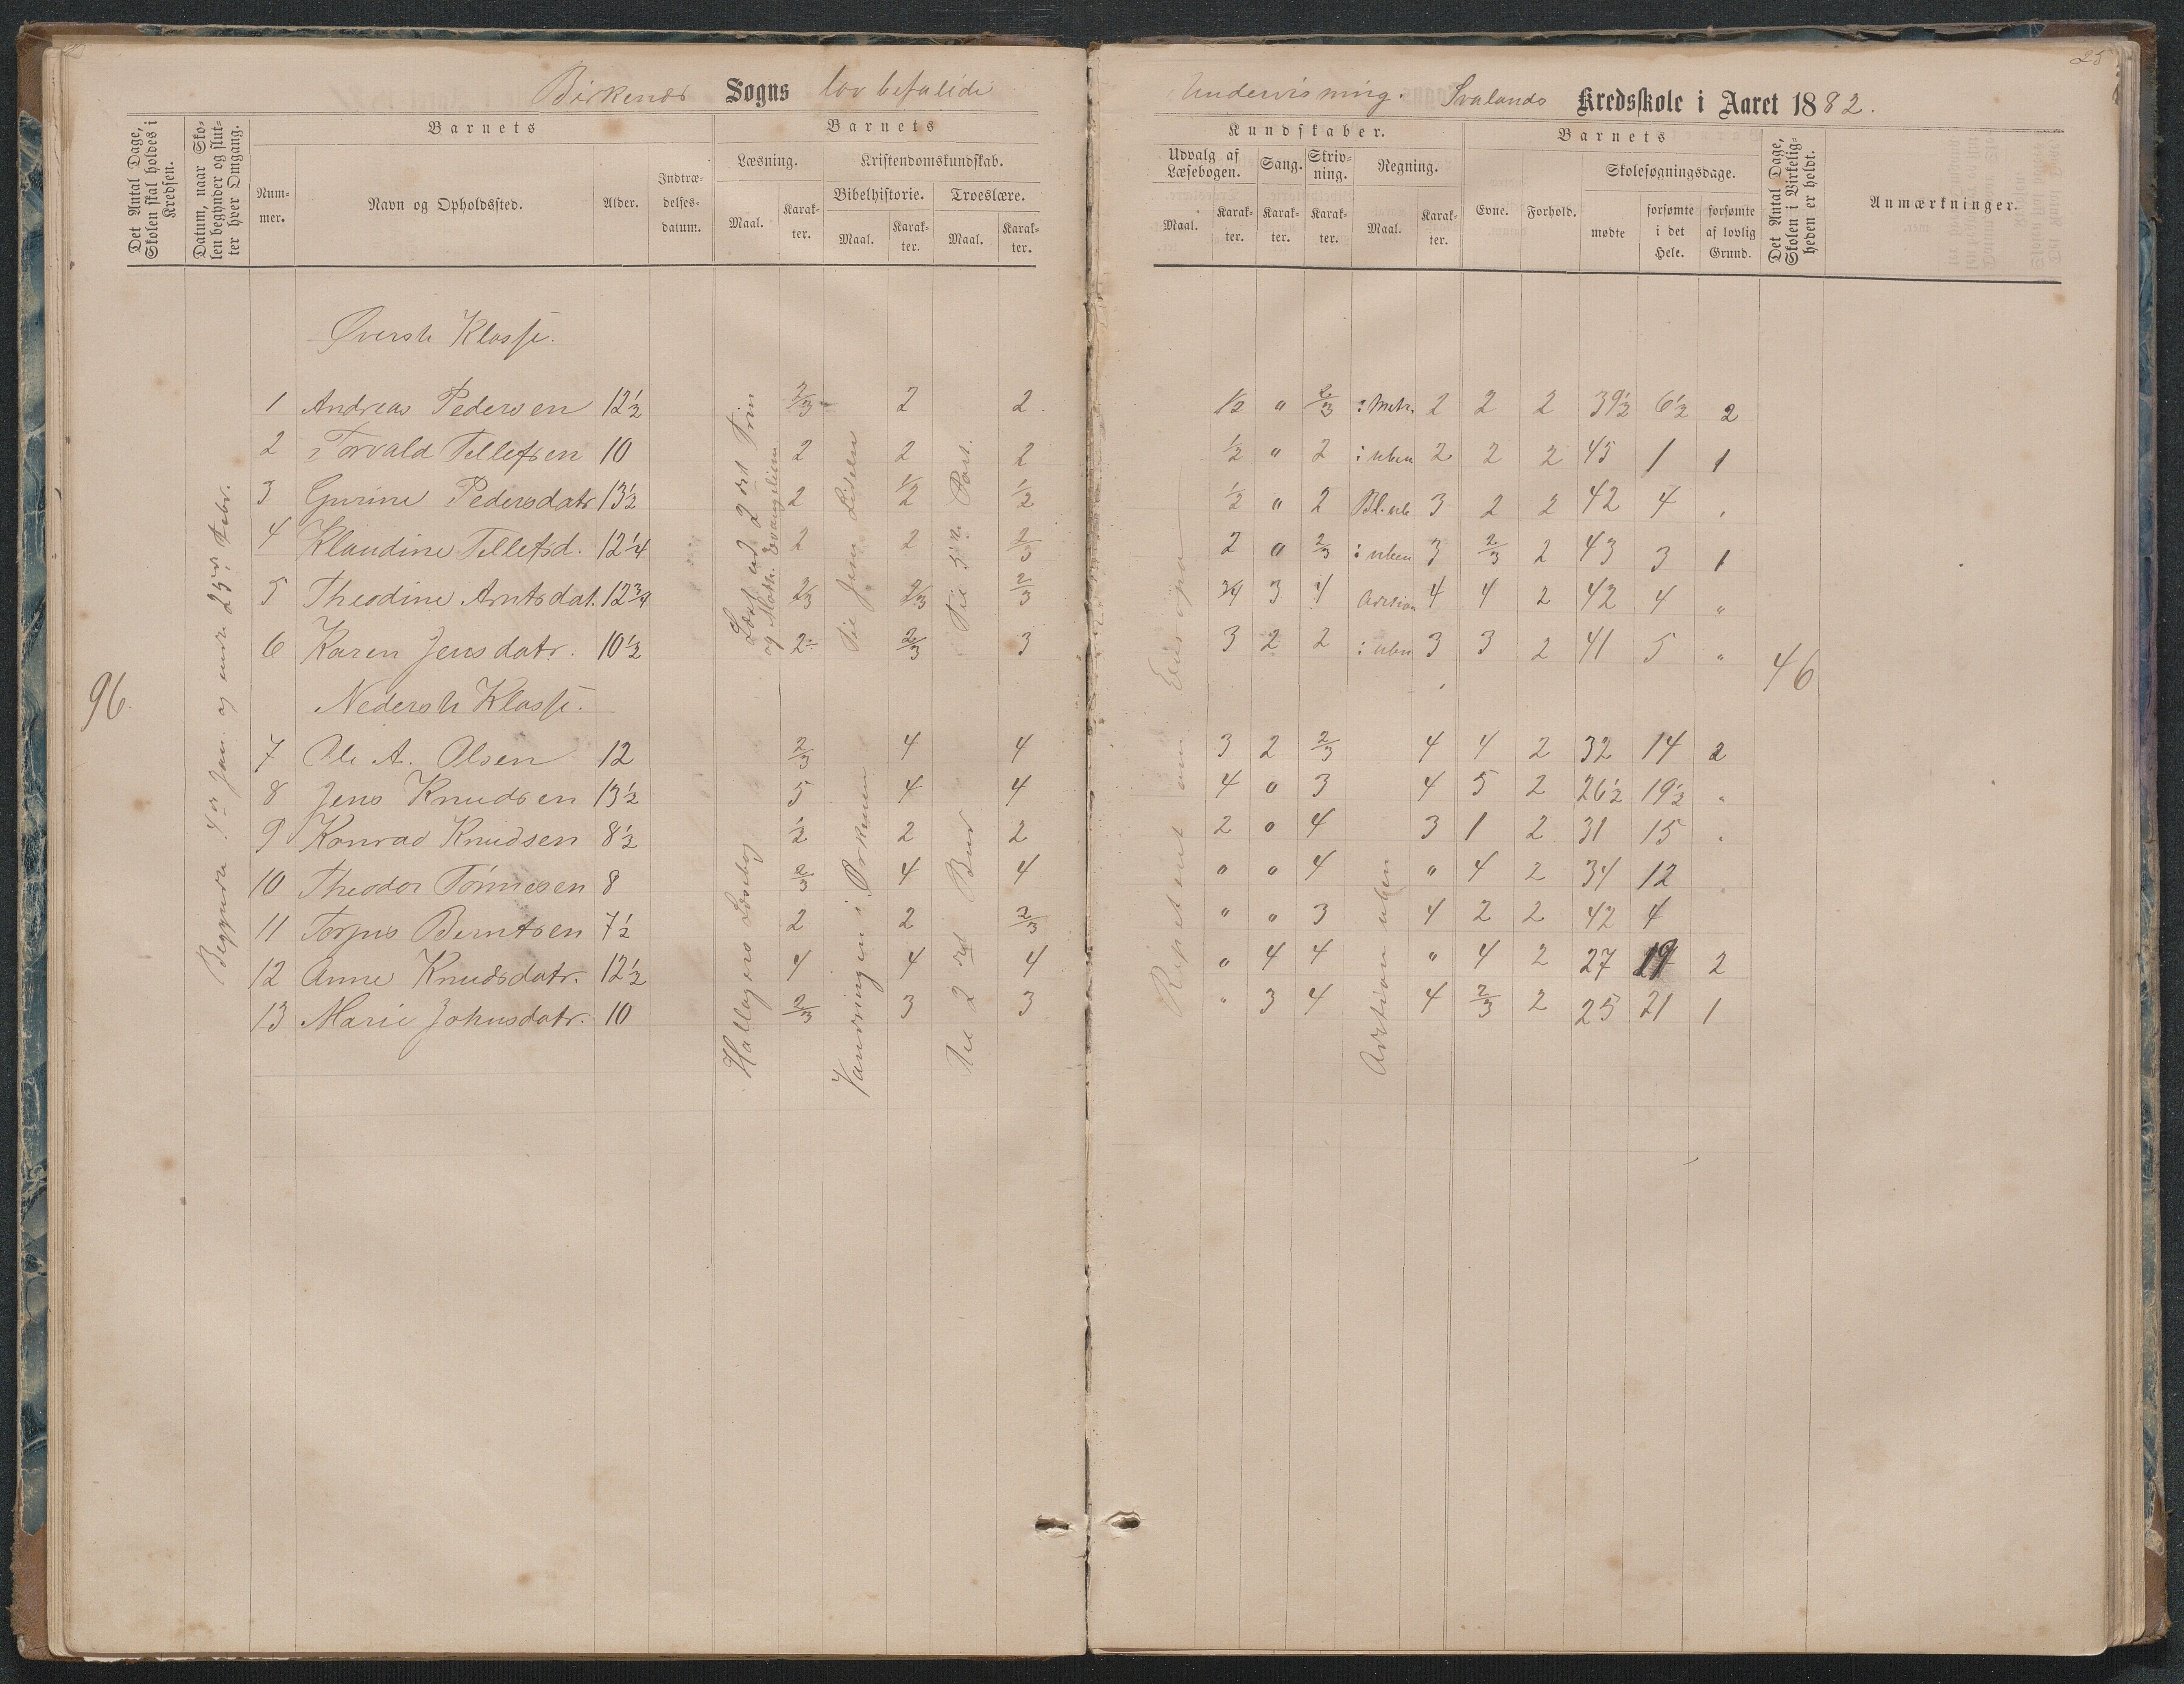 Birkenes Sogns lovbefalede Undervisning. Svalands Kredsskole i Aaret 1882.
25
Det Antal Dage, Skolen skal holdes i Kredsen.
Datum, naar Skolen begynder og slutter hver Omgang.
Barnets
Nummer.
Navn og Opholdssted.
Alder.
Indtrædelsesdatum.
Barnets
Læsning.
Maal.
Karakter.
Kristendomskundskab.
Bibelhistorie.
Maal.
Karakter.
Troeslære.
Maal.
Karakter.
Kundskaber.
Udvalg af Læsebogen.
Maal.
Karakter.
Sang.
Karakter.
Skrivning.
Karakter.
Regning.
Maal.
Karakter.
Barnets
Evne.
Forhold.
Skolesøgningsdage.
mødte
forsømte i det Hele.
forsømte af lovlig Grund.
Det Antal Dage, Skolen i Virkeligheden er holdt.
Anmærkninger.
96.
46
Øverste Klasse.
1 Andreas Pedersen 12½ 2/3 2 2 ½ " 2/3 2 2 2 39½ 6½ 2
2 Torvald Tellefsen 10 2 2 2 ½ " 2 i uben 2 2 2 45 1 1
3 Gurine Pedersdatr 13½ 2 ½ ½ ½ " 2 3 2 2 42 4 "
4 Klaudine Tellefsd. 12¼ 2 2 2/3 2 " 2/3 i uben 3 2/3 2 43 3 1
5 Theodine Arntsdat. 12¾ 2/3 2/3 2/3 3/4 3 4 Adition 4 4 2 42 4 "
6 Karen Jensdatr. 10½ 2 2/3 3 3 2 2 i uben 3 3 2 41 5 "
Nederste Klasse.
7 Ole A. Olsen 12 2/3 4 4 3 2 2/3 4 4 2 32 14 2
8 Jens Knudsen 13½ 5 4 4 4 " 3 4 5 2 26½ 19½ "
9 Konrad Knudsen 8½ ½ 2 2 2 " 4 3 1 2 31 15 "
10 Theodor Tönnesen 8 2/3 4 4 " " 4 " 4 2 34 12
11 Torjus Berntsen 7½ 2 2 2/3 " " 3 4 2 2 42 4
12 Anne Knudsdatr. 12½ 4 4 4 " 4 4 " 4 2 27 19 2
13 Marie Johnsdatr. 10 2/3 3 3 " 3 4 4 2/3 2 25 21 1
Læst ud 2det Trin
og Matth. Evangelium
Til Jesu Lidelse
Til 5te Part.
Hallagers Læsebog
Vandringen i Ørkenen
Til 2det Bud
Repeteret om Europa
Adition uben